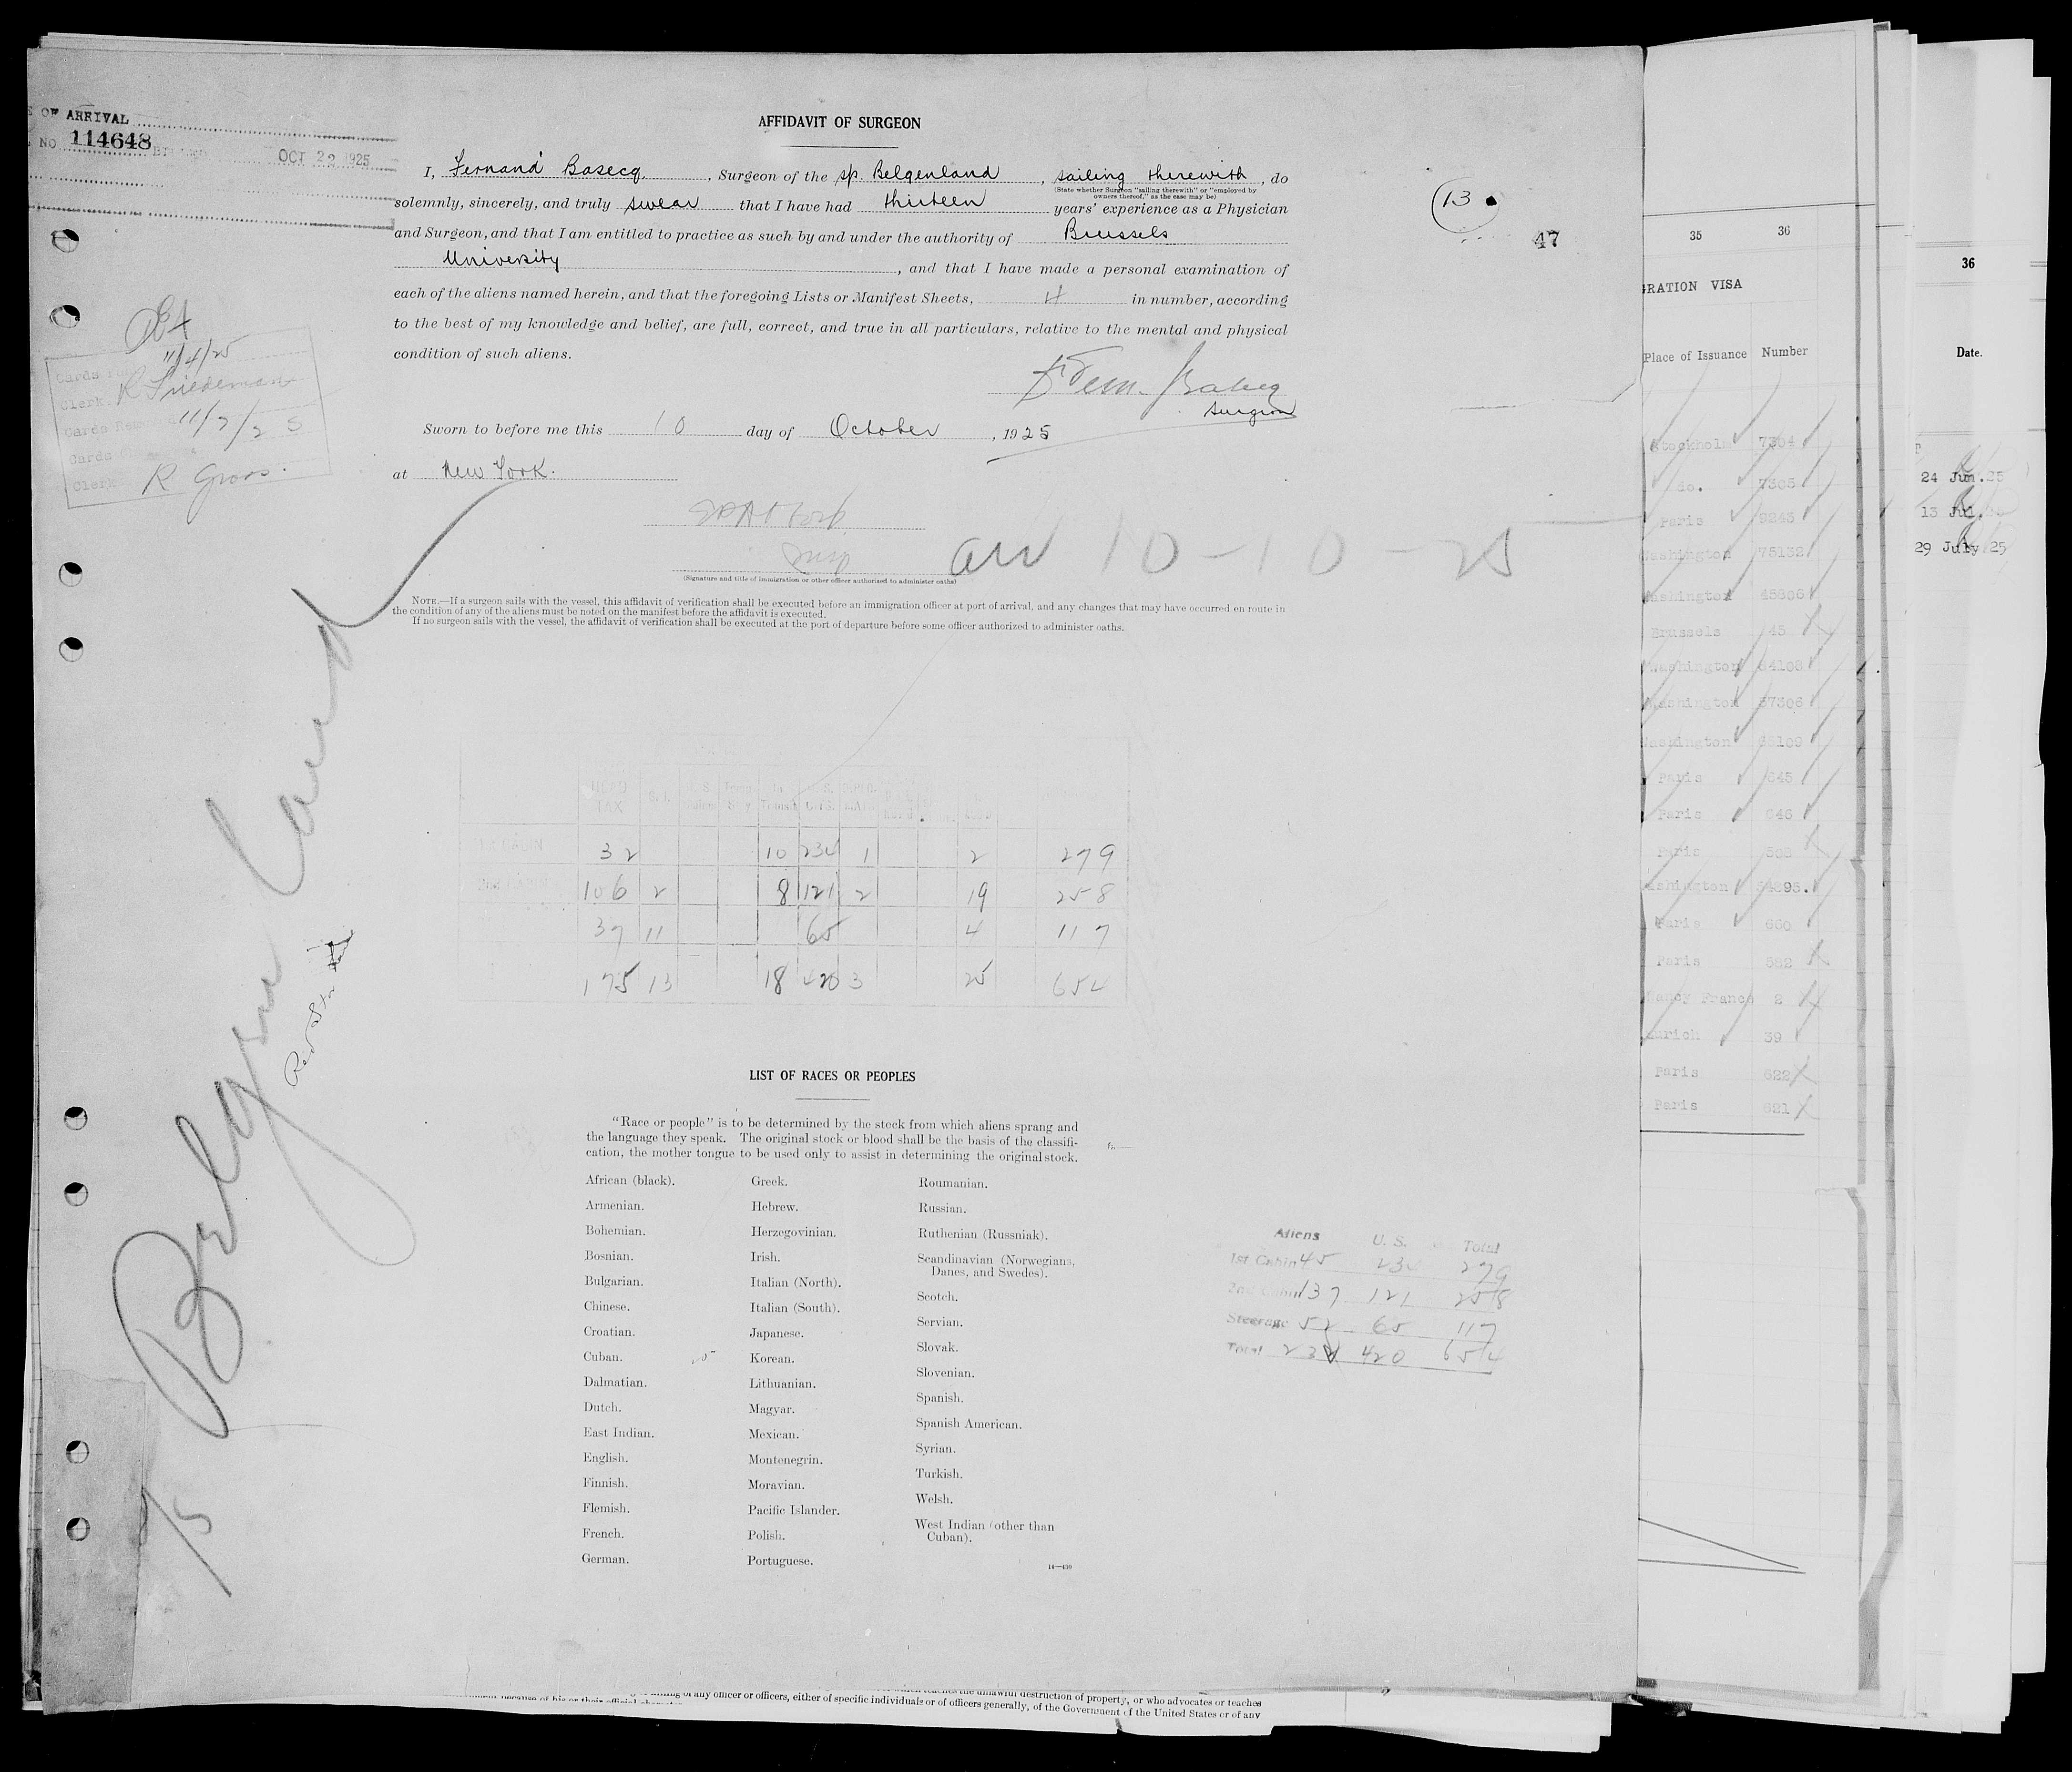 OF ARRIVAL
NO. 114648
OCT 22 1925
AFFIDAVIT OF SURGEON
I, Fernand Basecq, Surgeon of the sp. Belgenland, sailing therewith, do
(State whether Surgeon "sailing therewith" or "employed by
owners thereof," as the case may be)
solemnly, sincerely, and truly swear that I have had thirteen years' experience as a Physician
and Surgeon, and that I am entitled to practice as such by and under the authority of Brussels
University, and that I have made a personal examination of
each of the aliens named herein, and that the foregoing Lists or Manifest Sheets, in number, according
to the best of my knowledge and belief, are full, correct, and true in all particulars, relative to the mental and physical
condition of such aliens.
Surgeon
Sworn to before me this 10 day of October, 1925
at New York.
(13)
47
11/4/25
Clerk R Friedeman
11/7/25
Clerk R Gross.
arr 10-10-25
(Signature and title of immigration or other officer authorized to administer oaths)
NOTE.—If a surgeon sails with the vessel, this affidavit of verification shall be executed before an immigration officer at port of arrival, and any changes that may have occurred en route in
the condition of any of the aliens must be noted on the manifest before the affidavit is executed.
If no surgeon sails with the vessel, the affidavit of verification shall be executed at the port of departure before some officer authorized to administer oaths.
Belgenland
Red Star
HEAD TAX
Transit
32 10 234 1 2 279
106 2 8 121 2 19 258
37 11 65 4 117
175 13 18 420 3 25 654
LIST OF RACES OR PEOPLES
"Race or people" is to be determined by the stock from which aliens sprang and
the language they speak. The original stock or blood shall be the basis of the classifi-
cation, the mother tongue to be used only to assist in determining the original stock.
African (black).
Armenian.
Bohemian.
Bosnian.
Bulgarian.
Chinese.
Croatian.
Cuban.
Dalmatian.
Dutch.
East Indian.
English.
Finnish.
Flemish.
French.
German.
Greek.
Hebrew.
Herzegovinian.
Irish.
Italian (North).
Italian (South).
Japanese.
Korean.
Lithuanian.
Magyar.
Mexican.
Montenegrin.
Moravian.
Pacific Islander.
Polish.
Portuguese.
Roumanian.
Russian.
Ruthenian (Russniak).
Scandinavian (Norwegians,
Danes, and Swedes).
Scotch.
Servian.
Slovak.
Slovenian.
Spanish.
Spanish American.
Syrian.
Turkish.
Welsh.
West Indian (other than
Cuban).
14—430
Aliens U. S. Total
1st Cabin 45 234 279
2nd Cabin 137 121 258
Steerage 52 65 117
Total 234 420 654
of any officer or officers, either of specific individuals or of officers generally, of the Government of the United States or of any
unlawful destruction of property, or who advocates or teaches
35 36
GRATION VISA
Place of Issuance Number
Stockholm 7304
do. 7305
Paris 9243
Washington 75132
Washington
Brussels 45
Washington
Washington
Washington
Paris 645
Paris 646
Paris
Washington
Paris 660
Paris 582
Nancy France 2
Zurich 39
Paris 622
Paris 621
36
Date.
24 Jun. 25
13 Jul.
29 July 25